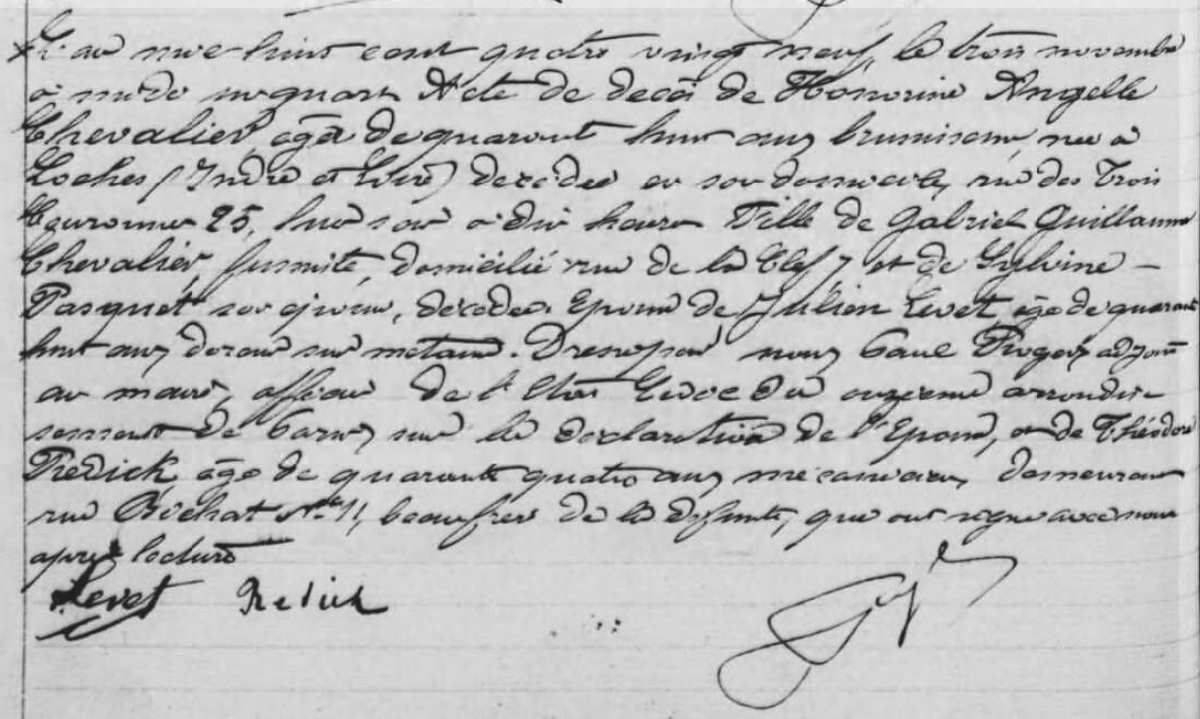 L'an mil huit cent quatre vingt neuf, le trois novembre
à midi un quart Acte de décès de Honorine Angelle
Chevalier, âgée de quarante huit ans brunisseuse, née à
Loches (Indre et Loire) décédée en son domicile, rue des Trois
Couronnes 25, hier soir à dix heures Fille de Gabriel Guillaume
Chevalier, fumiste, domicilié rue de la Clef 7 et de Sylvine
Pasquet son épouse, décédée. Epouse de Julien Levet âgé de quarante
huit ans doreur sur métaux. Dressé par nous Paul Roger, adjoint
au maire, officier de l'Etat Civil du onzième arrondis-
sement de Paris, sur la déclaration de l'Epoux, et de Théodore
Redick âgé de quarante quatre ans, mécanicien, demeurant
rue 11, beaufrère de la défunte, qui ont signé avec nous
après lecture
Levet Redick